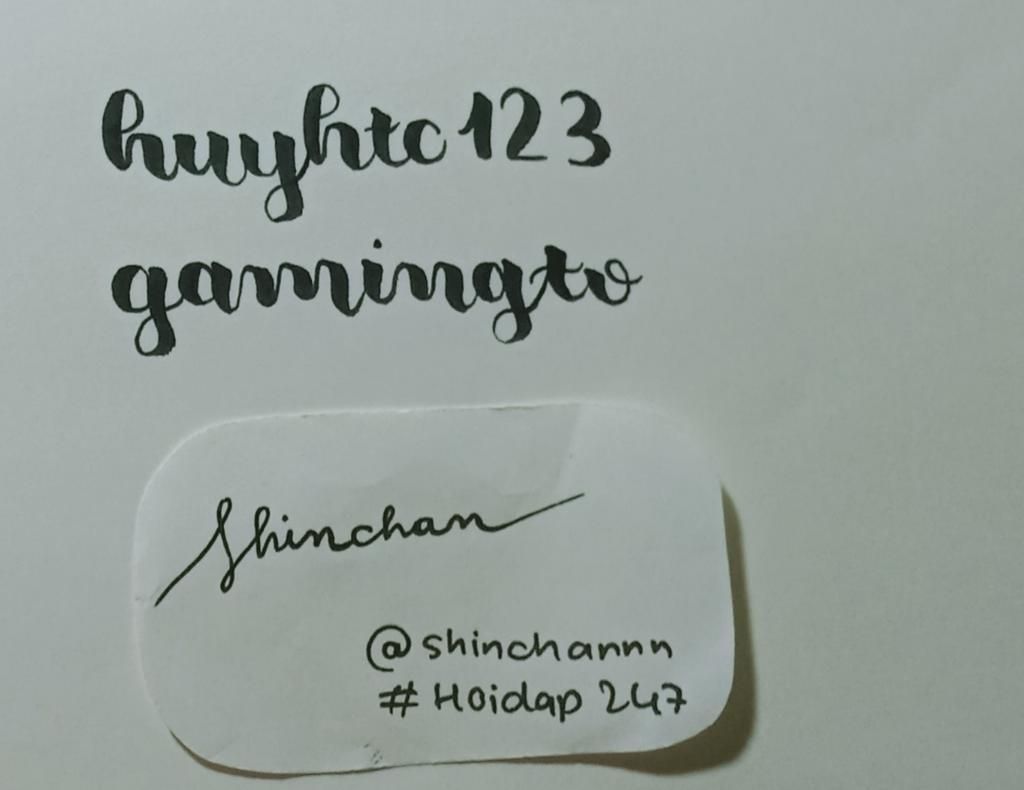 huyhtc123
gamingtv
Shinchan
@shinchannn
#Hoidap 247